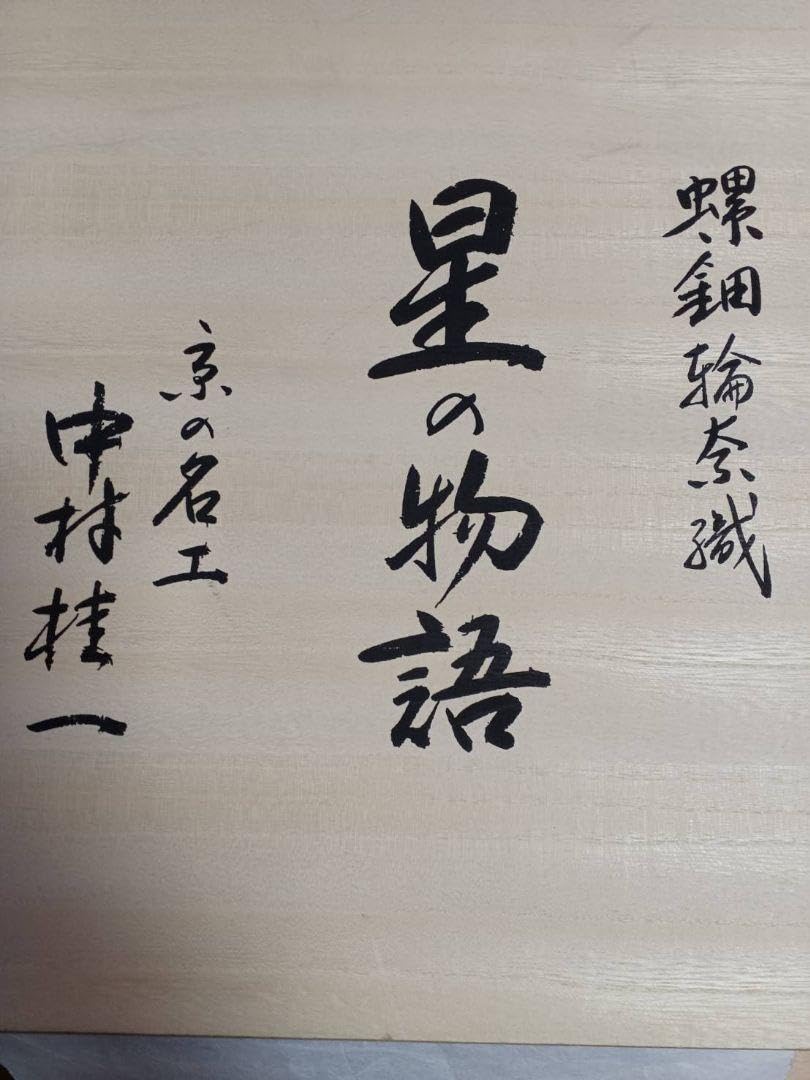 螺鈿輪奈織
星の物語
京の名工
中村桂一